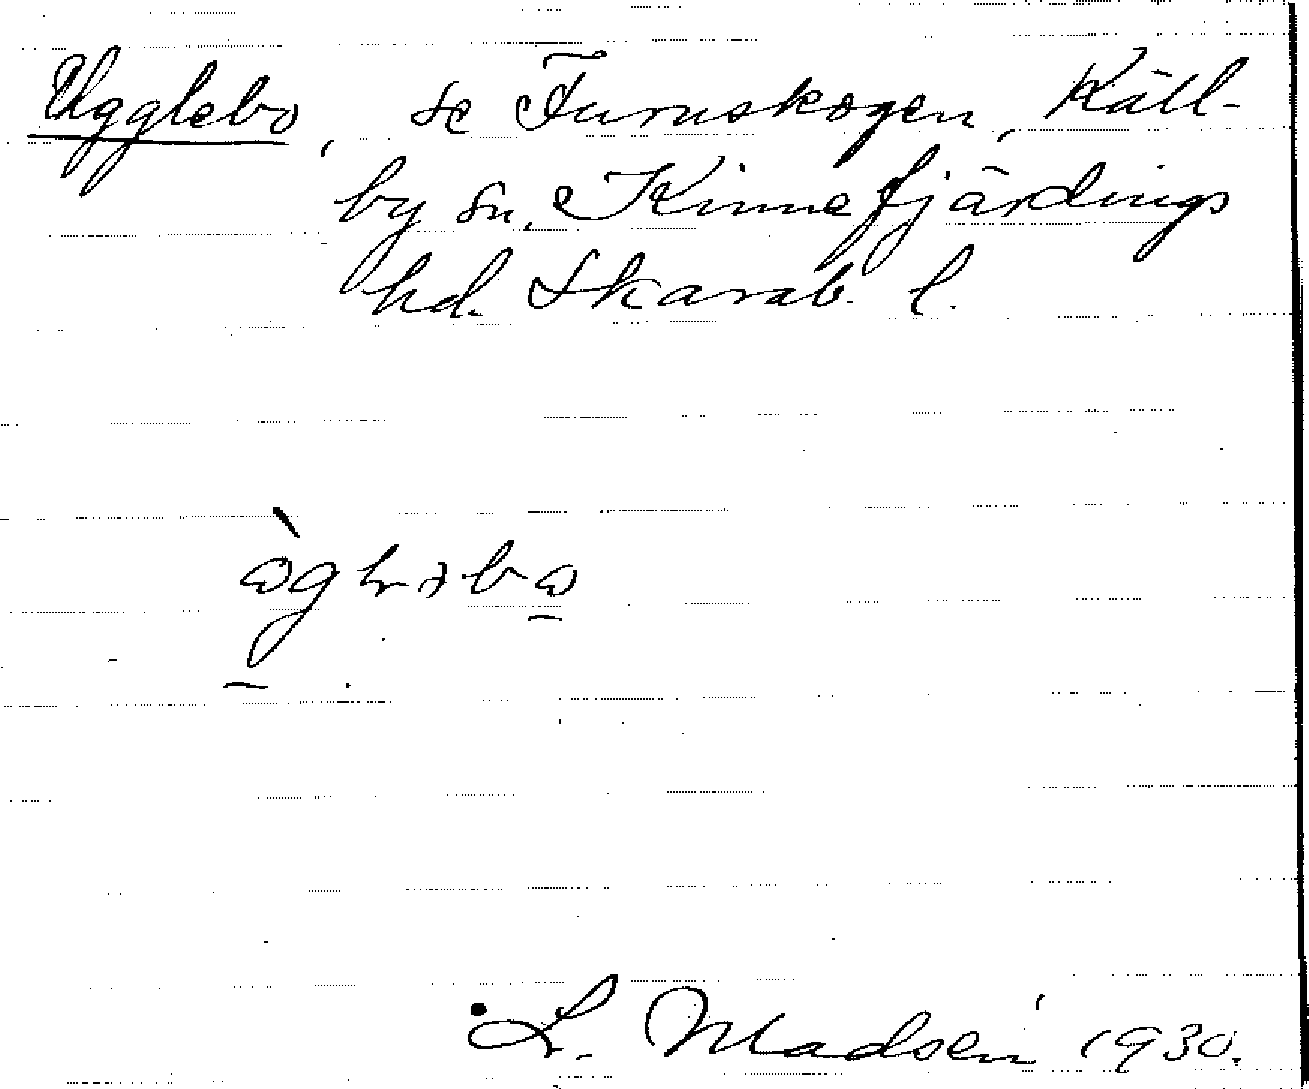 Ugglebo, se Furuskogen, Käll-
by sn, Kinnefjärdings
hd. Skarab. l.
L. Madsén 1930.